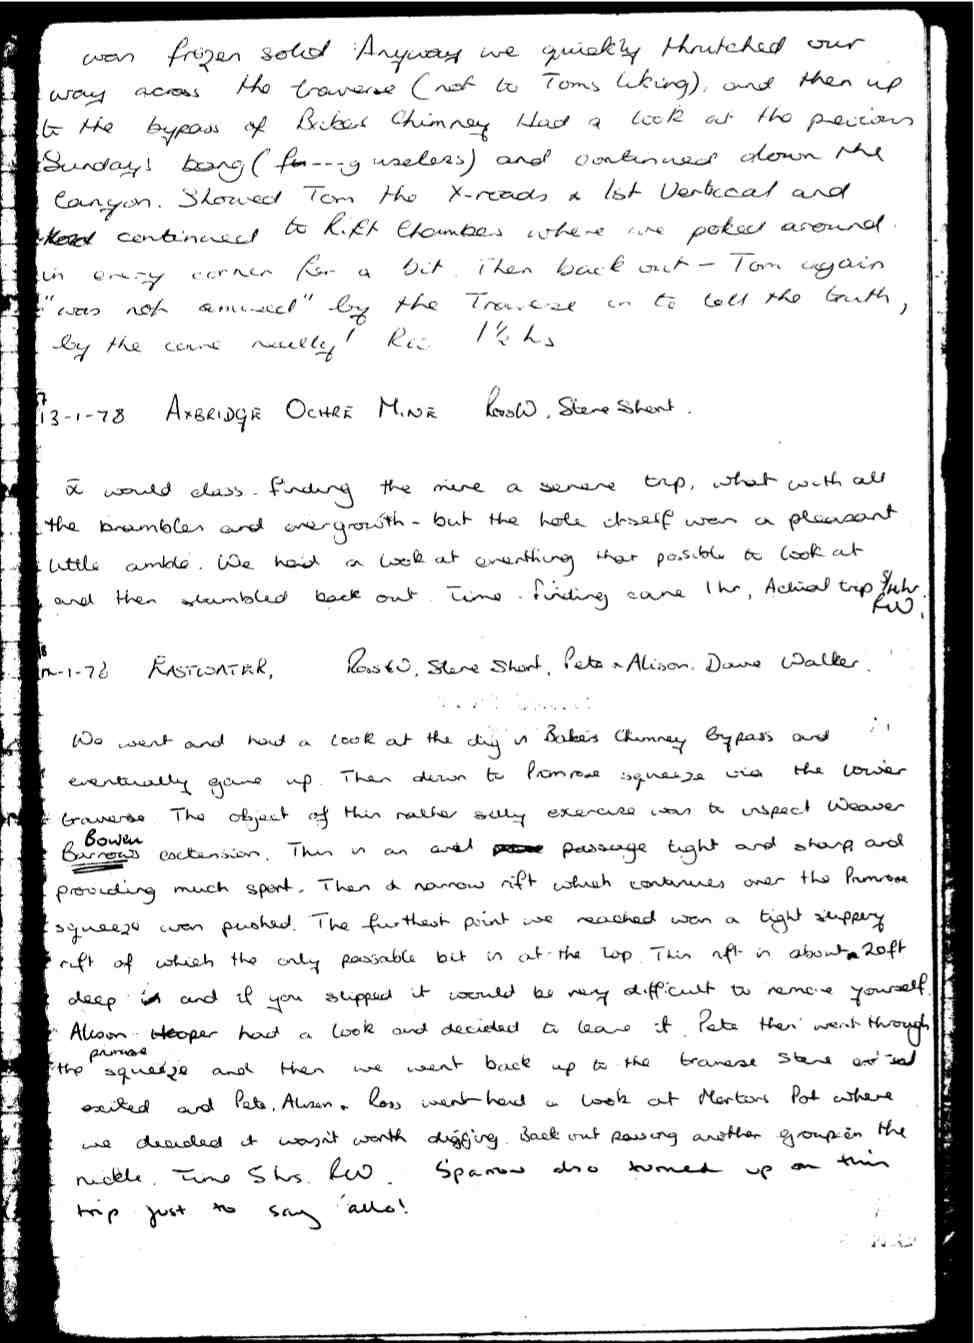 was frozen solid Anyway we quickly thrutched our
way across the traverse (not to Toms liking), and then up
to the bypass of Bakers Chimney Had a look at the previous
Sunday's bang (fu---g useless) and continued down the
Canyon. Showed Tom the X-roads & 1st Vertical and
continued to Rift Chambers where we poked around
in every corner for a bit. Then back out - Tom again
"was not amused" by the Traverse or to tell the truth,
by the cave really! 1½ hs
13-1-78 AXBRIDGE OCHRE MINE RossW, Steve Short.
I would class finding the mine a severe trip, what with all
the brambles and overgrowth - but the hole itself was a pleasant
little amble. We had a look at everthing that possible to look at
and then stumbled back out. Time - finding cave 1hr, Actual trip ¾hr
RW.
-1-78 EASTWATER, RossW, Steve Short, Pete & Alison. Dave Walker.
We went and had a look at the dig in Bakers Chimney bypass and
eventually gave up. Then down to Primrose squeeze via the lower
traverse. The object of this rather silly exercise was to inspect Weaver
Bowen
Barrows extension. This is an passage tight and sharp and
providing much sport. Then a narrow rift which continues over the Primrose
squeeze was pushed. The furthest point we reached was a tight slippery
rift of which the only passable bit is at the top. This rift is about 20ft
deep and if you slipped it would be very difficult to remove yourself.
Alison Hooper had a look and decided to leave it. Pete then went through
primrose
the squeeze and then we went back up to the traverse Steve
exited and Pete, Alison & Ross went had a look at Mortons Pot where
we decided it wasn't worth digging. Back out passing another group in the
ruckle. Time 5hrs. RW. Sparrow also turned up on this
trip just to say 'allo!